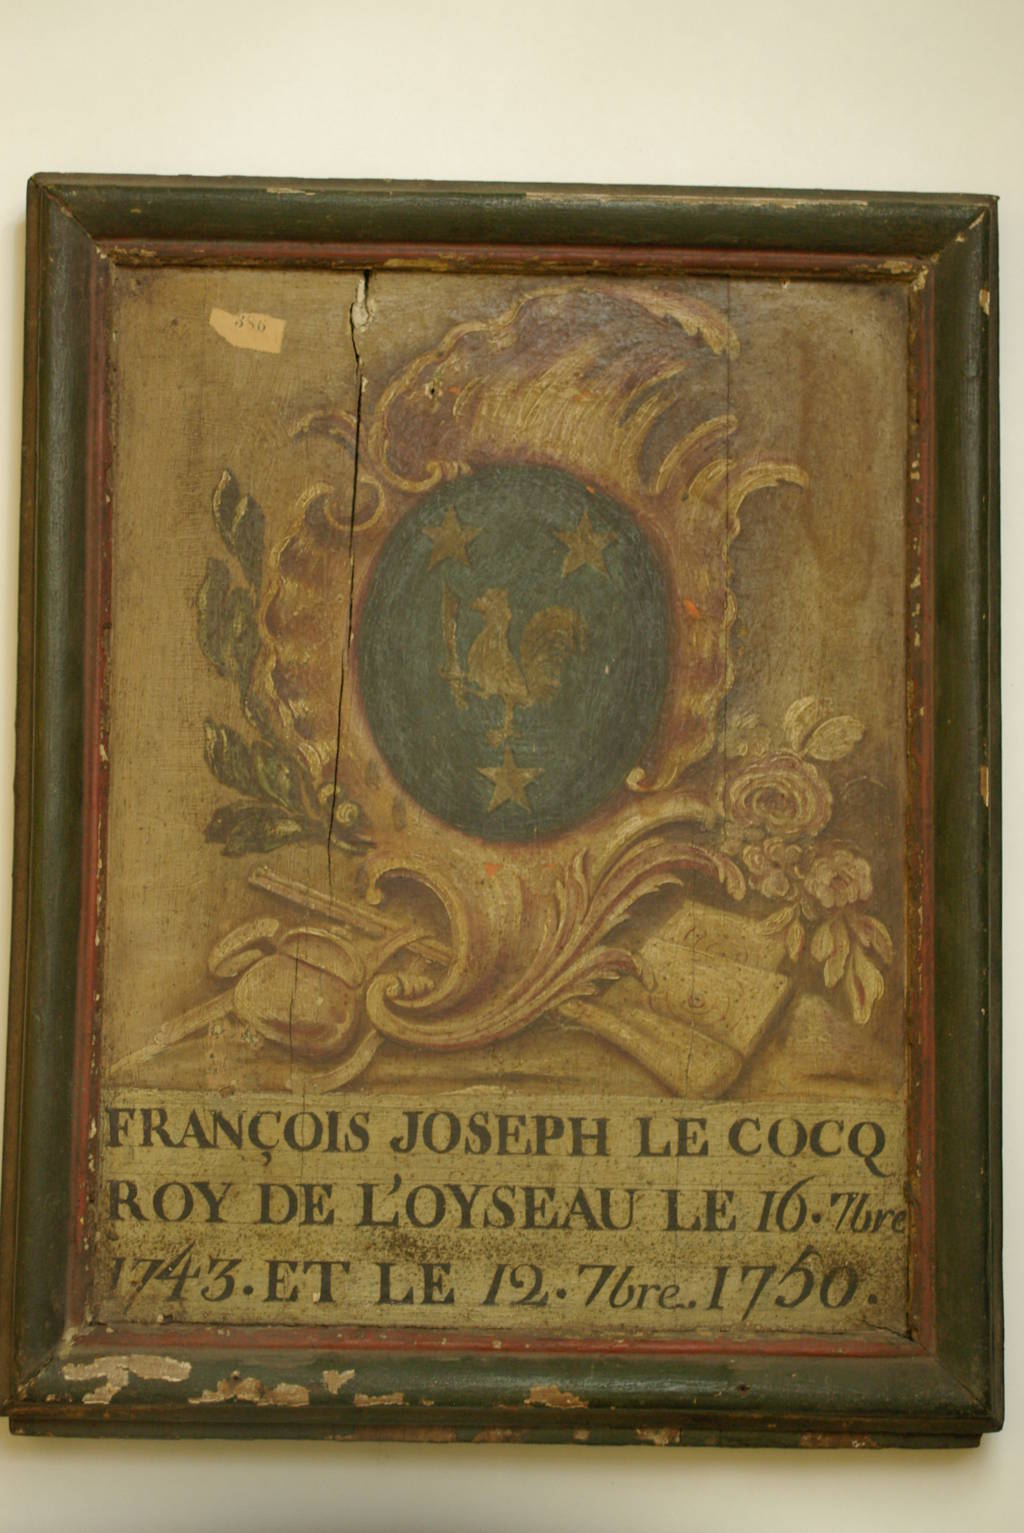 386
FRANÇOIS JOSEPH LE COCQ
ROY DE L'OYSEAU LE 16. 7bre
1743. ET LE 12. 7bre. 1750.